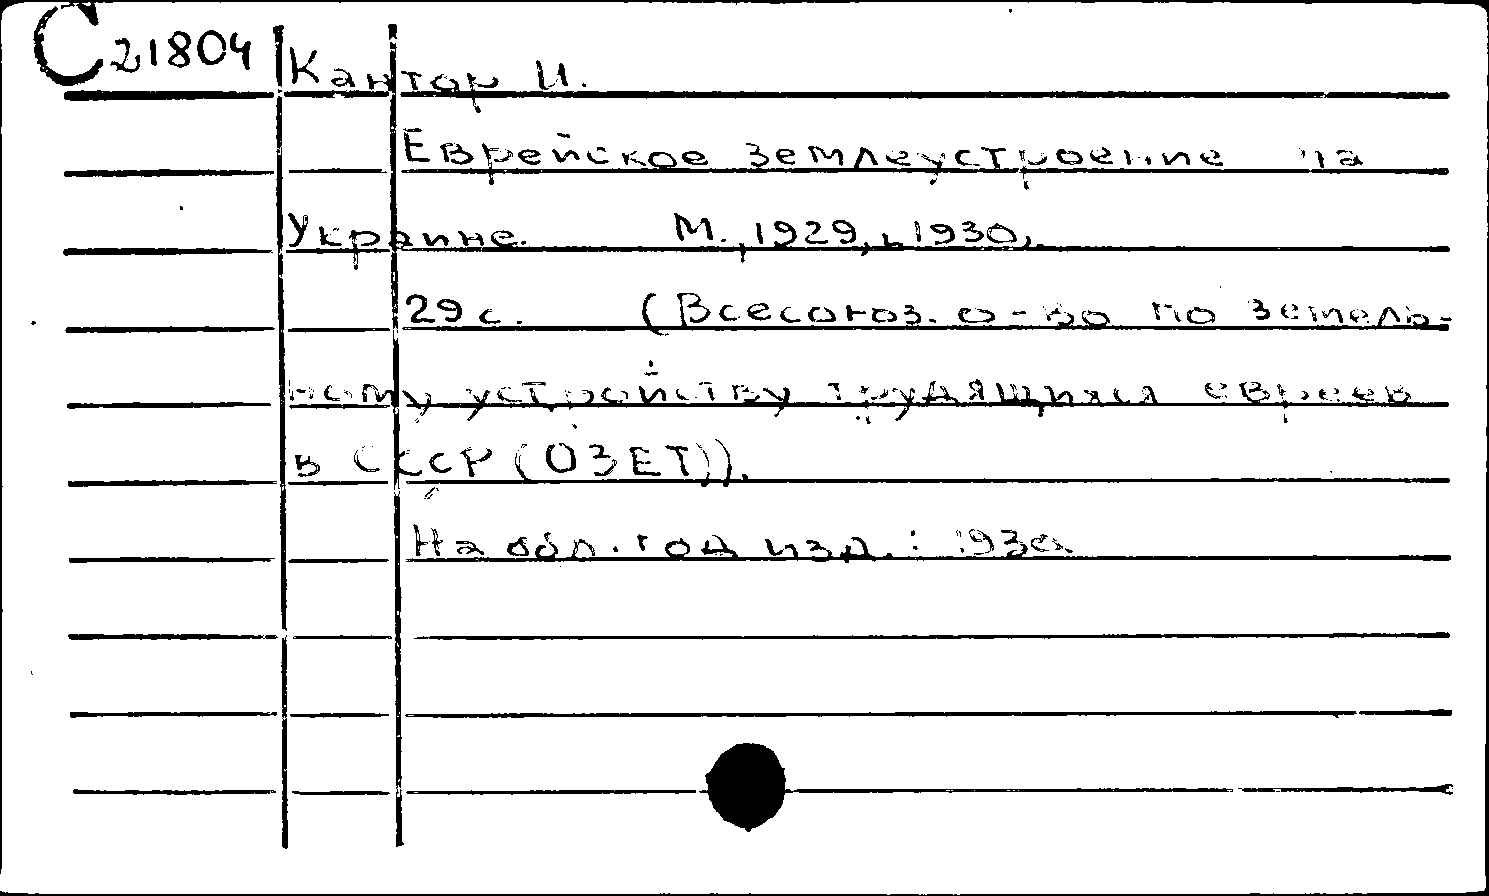 C 21804 Кантор И.
Еврейское землеустроение на
Украине. М., 1929, 1930,
29 с. (Всесоюз. о-во по земель-
ному устройству трудящихся евреев
в СССР (ОЗЕТ)).
На обл. год изд.: 1930.